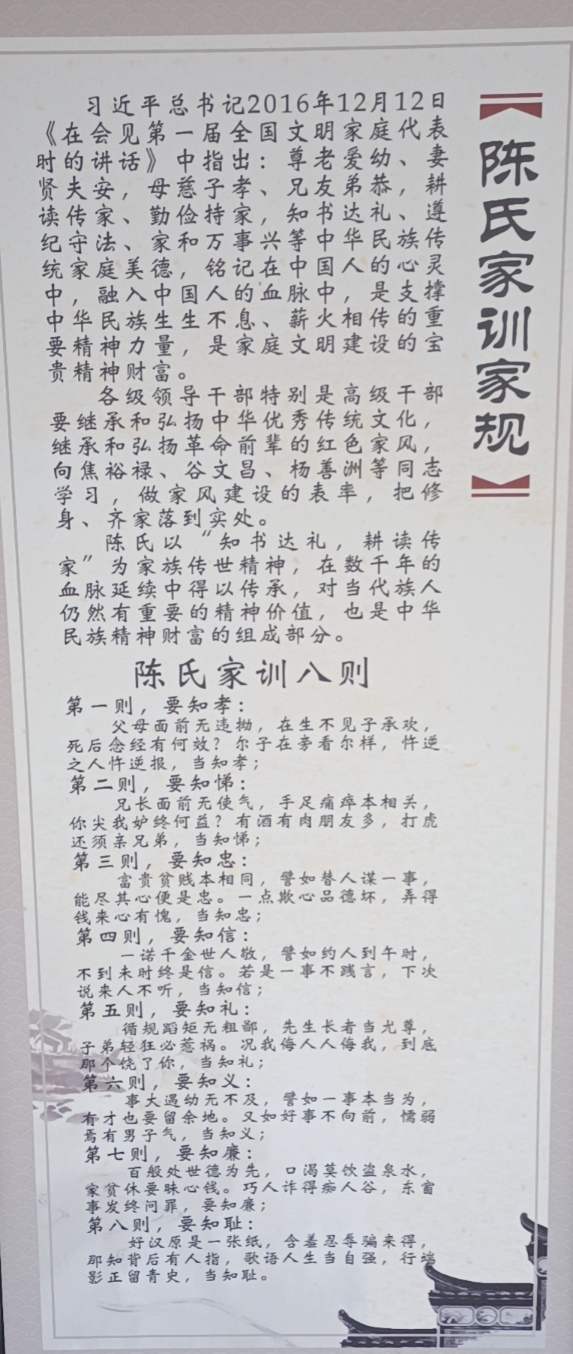 陈氏家训家规
习近平总书记2016年12月12日
《在会见第一届全国文明家庭代表
时的讲话》中指出：尊老爱幼、妻
贤夫安，母慈子孝、兄友弟恭，耕
读传家、勤俭持家，知书达礼、遵
纪守法、家和万事兴等中华民族传
统家庭美德，铭记在中国人的心灵
中，融入中国人的血脉中，是支撑
中华民族生生不息、薪火相传的重
要精神力量，是家庭文明建设的宝
贵精神财富。
各级领导干部特别是高级干部
要继承和弘扬中华优秀传统文化，
继承和弘扬革命前辈的红色家风，
向焦裕禄、谷文昌、杨善洲等同志
学习，做家风建设的表率，把修
身、齐家落到实处。
陈氏以“知书达礼，耕读传
家”为家族传世精神，在数千年的
血脉延续中得以传承，对当代族人
仍然有重要的精神价值，也是中华
民族精神财富的组成部分。
陈氏家训八则
第一则，要知孝：
父母面前无违拗，在生不见子承欢，
死后念经有何效？尔子在旁看尔样，忤逆
之人忤逆报，当知孝；
第二则，要知悌：
兄长面前无使气，手足痛痒本相关，
你尖我妒终何益？有酒有肉朋友多，打虎
还须亲兄弟，当知悌；
第三则，要知忠：
富贵贫贱本相同，譬如替人谋一事，
能尽其心便是忠。一点欺心品德坏，弄得
钱来心有愧，当知忠；
第四则，要知信：
一诺千金世人敬，譬如约人到午时，
不到未时终是信。若是一事不践言，下次
说来人不听，当知信；
第五则，要知礼：
循规蹈矩无粗鄙，先生长者当尤尊，
子弟轻狂必惹祸。况我侮人人侮我，到底
那个饶了你，当知礼；
第六则，要知义：
事大遇幼无不及，譬如一事本当为，
有才也要留余地。又如好事不向前，懦弱
焉有男子气，当知义；
第七则，要知廉：
百般处世德为先，口渴莫饮盗泉水，
家贫休要昧心钱。巧人诈得痴人谷，东窗
事发终问罪，要知廉；
第八则，要知耻：
好汉原是一张纸，含羞忍辱骗来得，
那知背后有人指，歌语人生当自强，行端
影正留青史，当知耻。